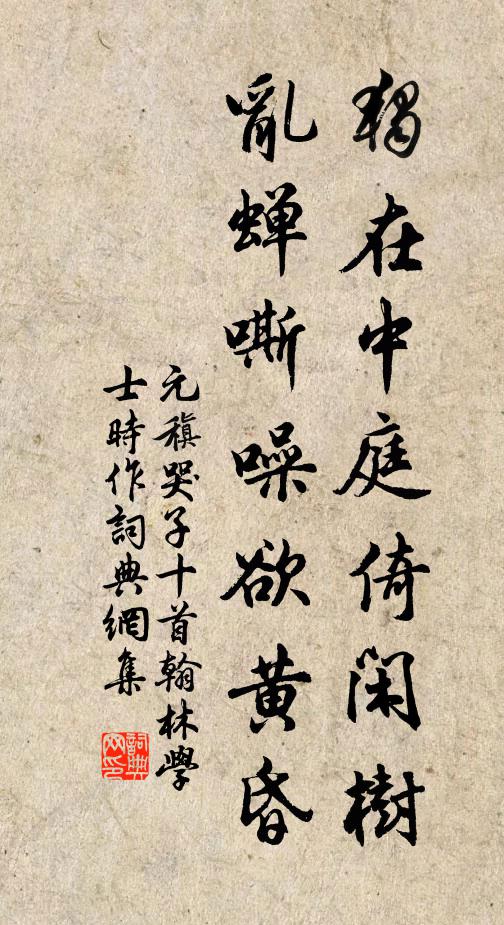 獨在中庭倚閑樹
亂蟬嘶噪欲黃昏
元稹哭子十首翰林學
士時作詞典網集
詞典
网印